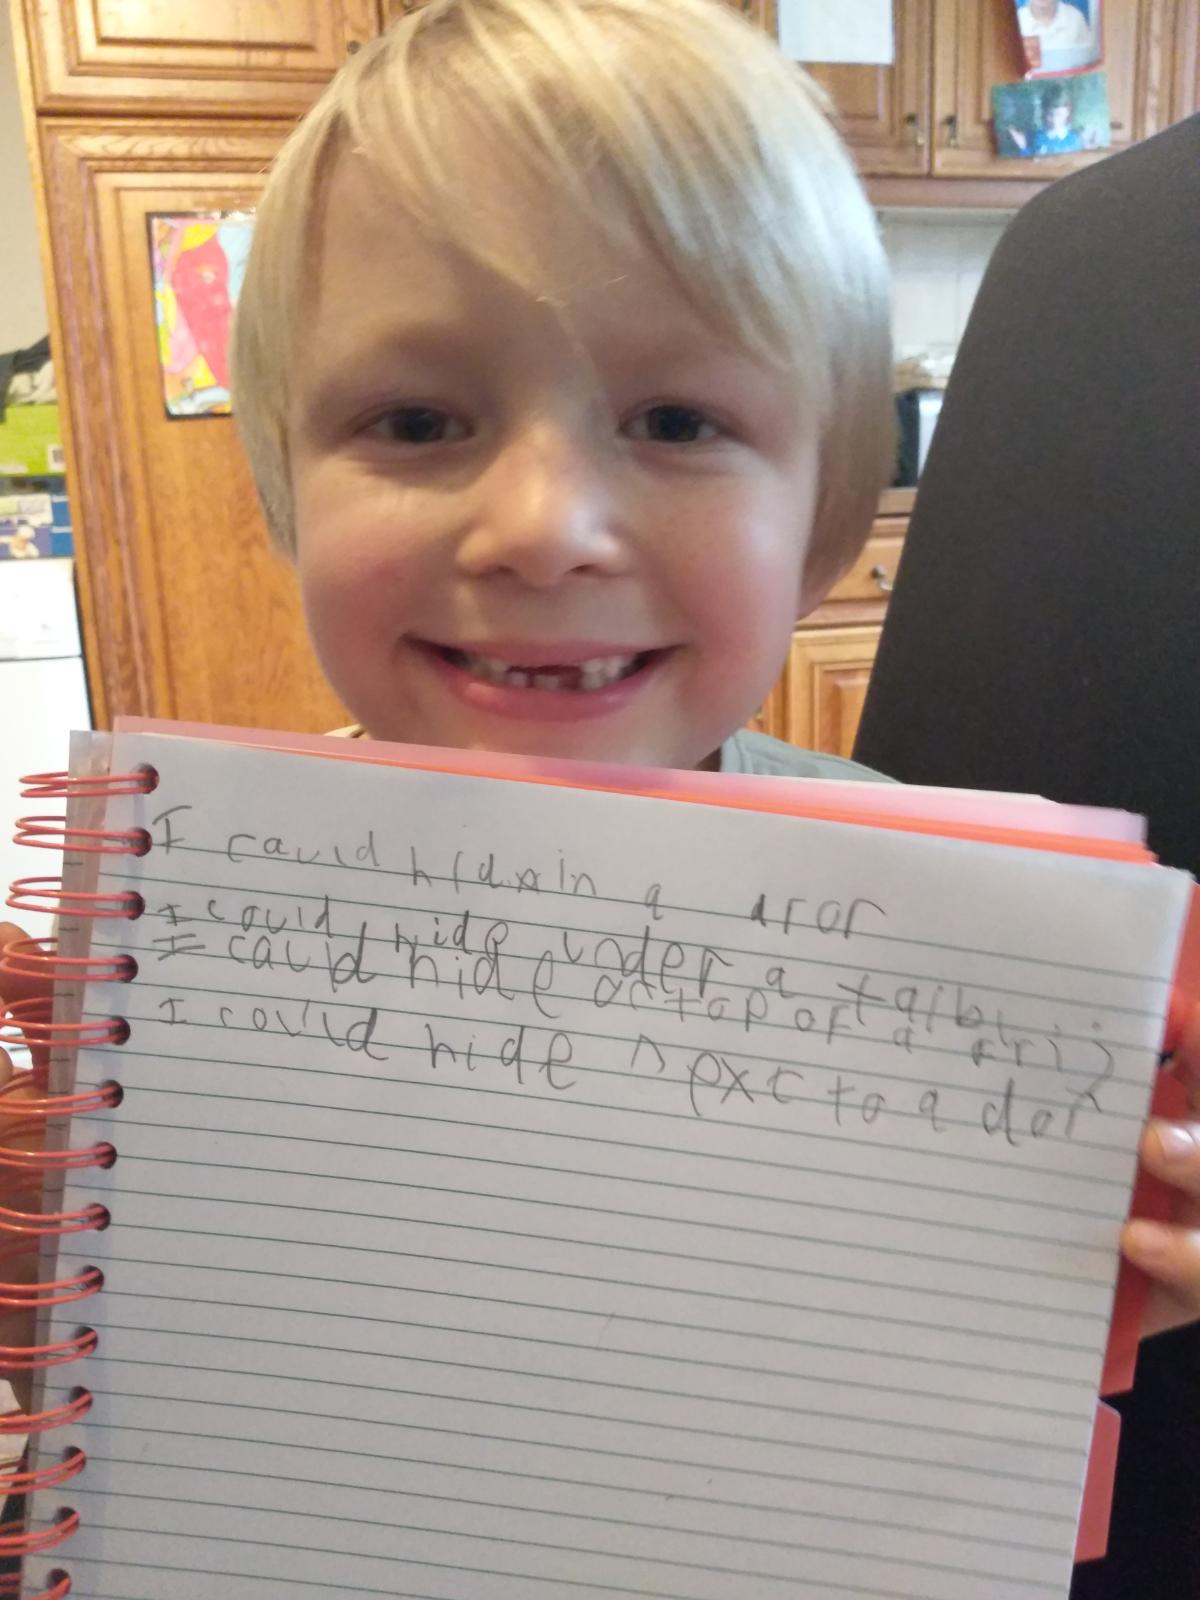 I could hidx in a dror
I could hide under a talbl
I could hide ontop of a frij
I could hide next to a dor